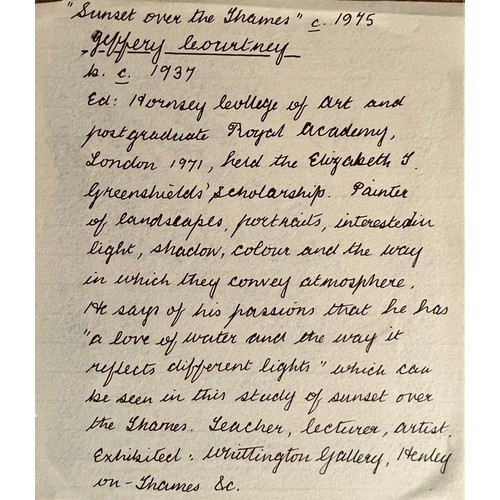 "Sunset over the Thames" c. 1975
Jeffery Courtney
b. c. 1937
Ed: Hornsey College of Art and
postgraduate Royal Academy,
London 1971, held the Elizabeth T.
Greenshields' Scholarship. Painter
of landscapes, portraits, interested in
light, shadow, colour and the way
in which they convey atmosphere.
He says of his passions that he has
"a love of water and the way it
reflects different lights" which can
be seen in this study of sunset over
the Thames. Teacher, lecturer, artist.
Exhibited: Whittington Gallery, Henley
on-Thames &c.